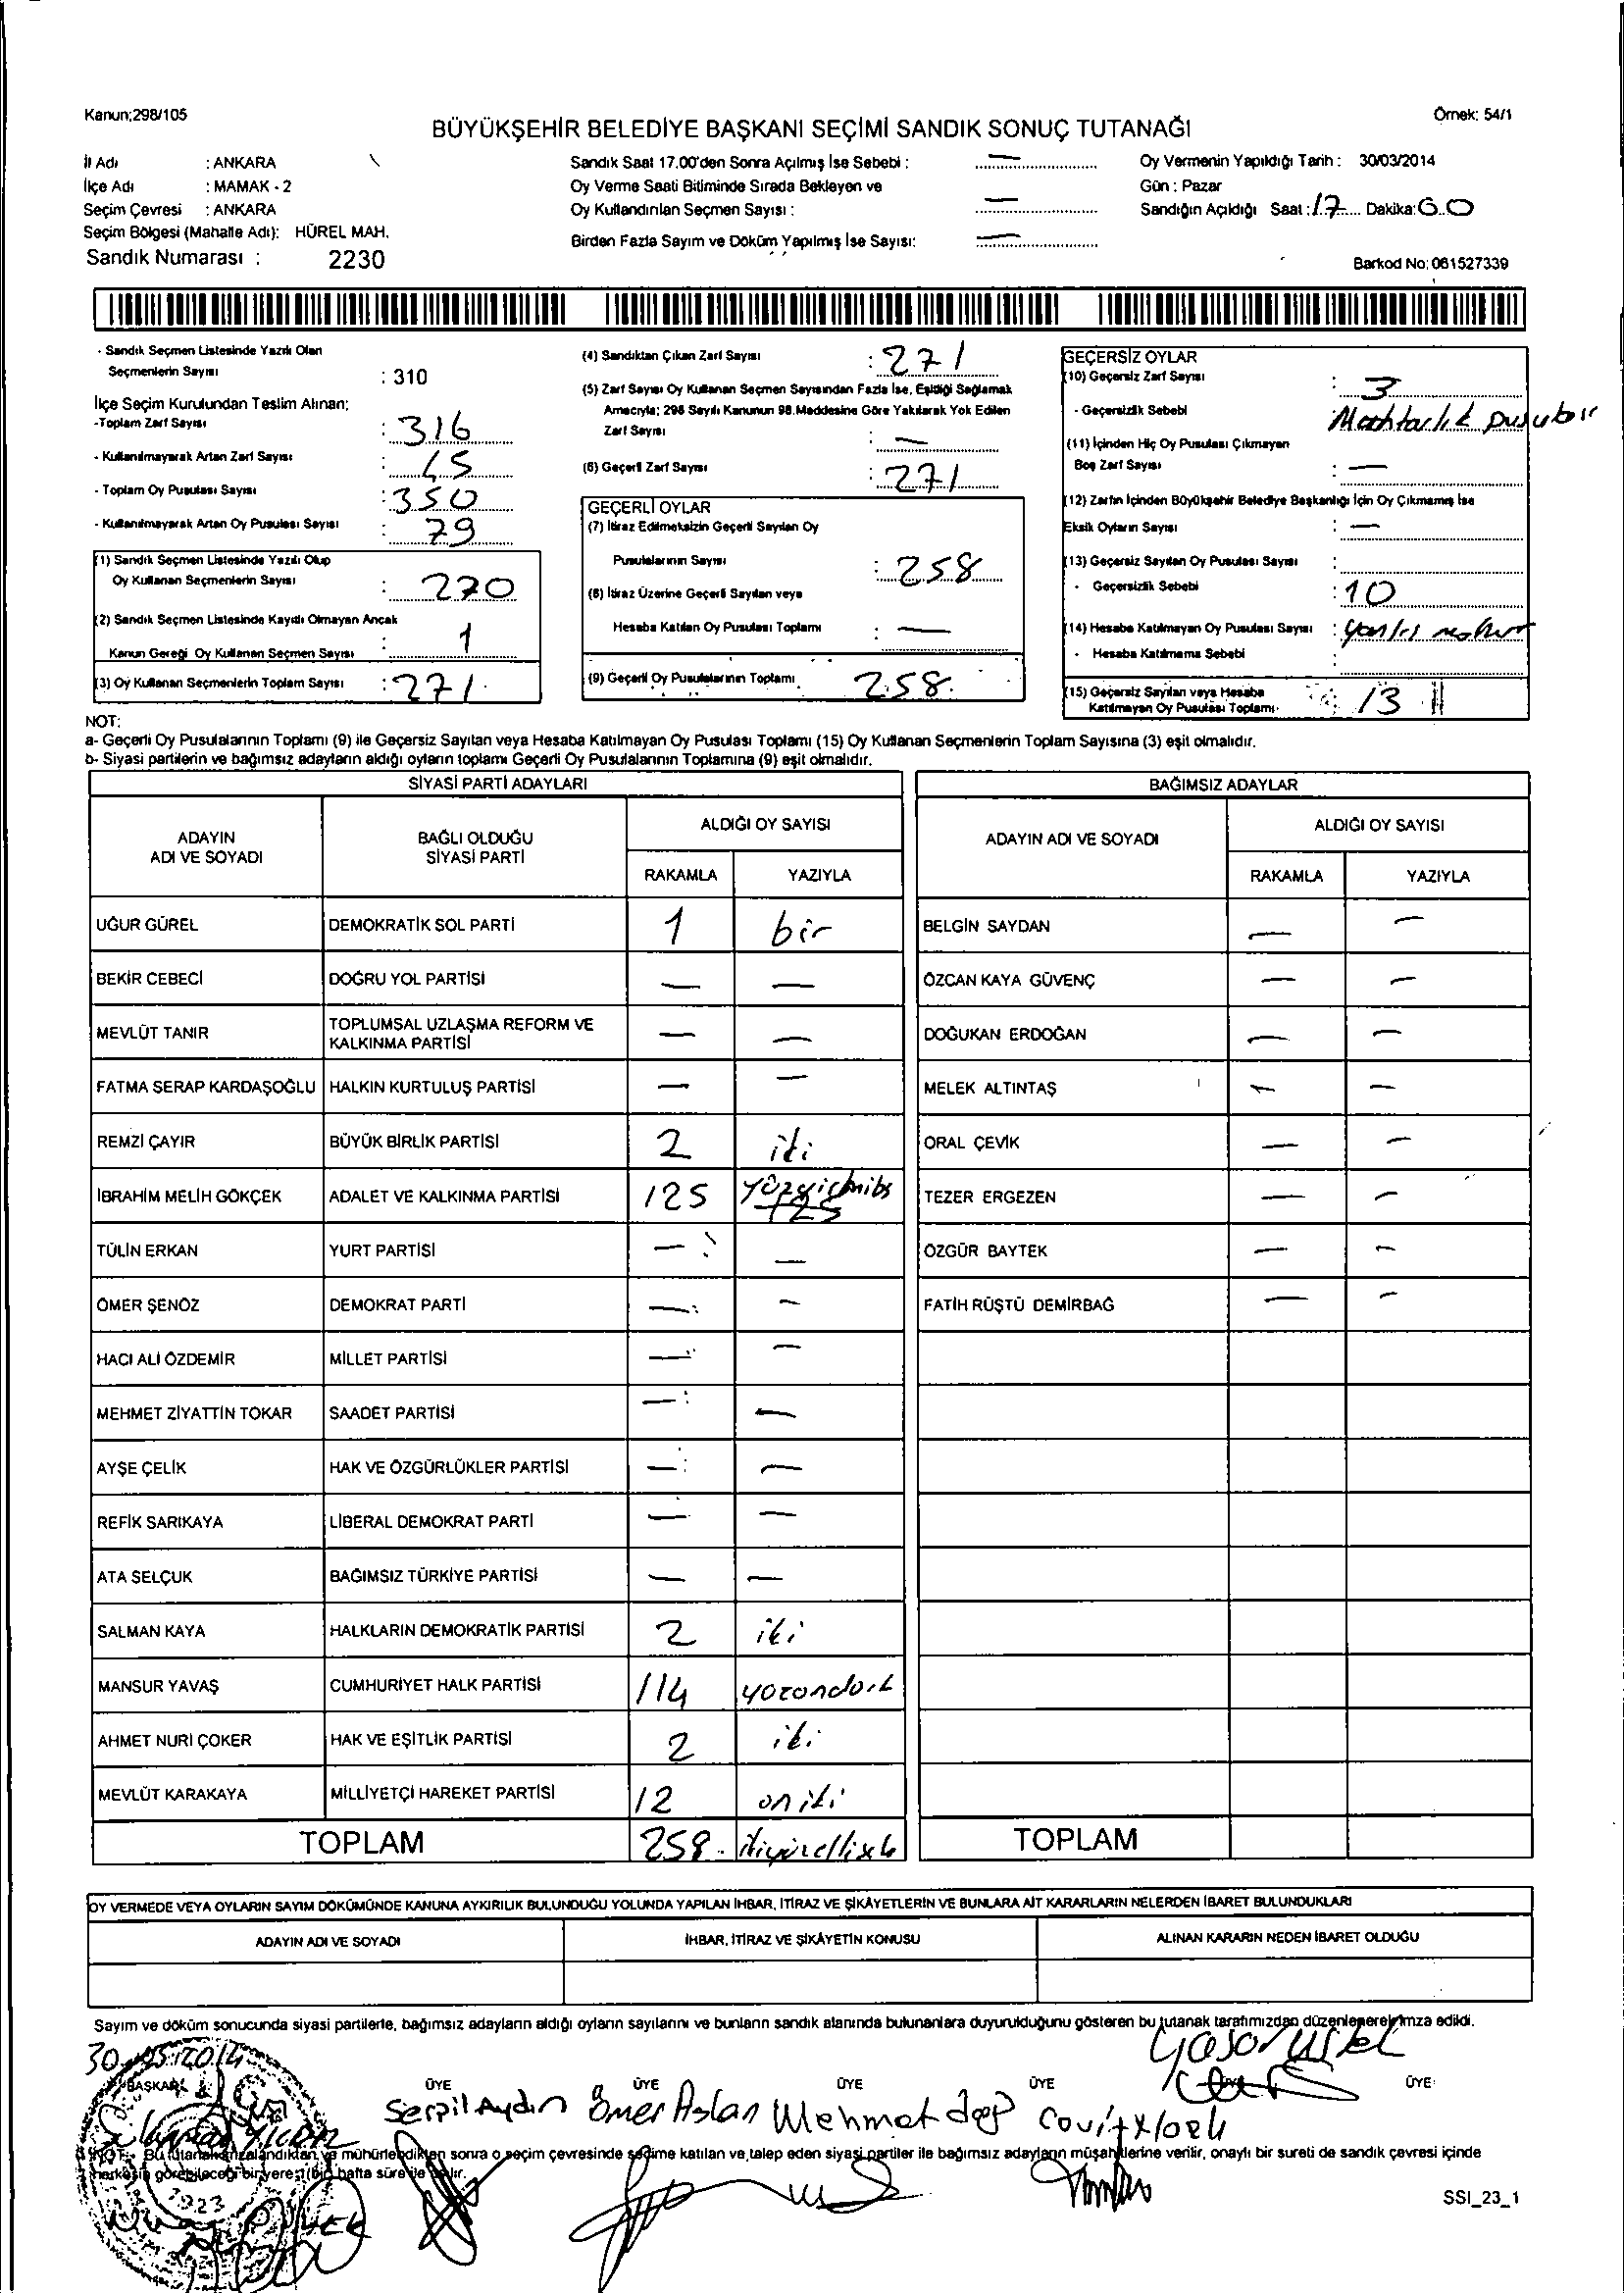 Kanun;298/105
Örnek: 54/1
BÜYÜKŞEHİR BELEDİYE BAŞKANI SEÇİMİ SANDIK SONUÇ TUTANAĞI
İl Adı : ANKARA
İlçe Adı : MAMAK - 2
Seçim Çevresi : ANKARA
Seçim Bölgesi (Mahalle Adı): HÜREL MAH.
Sandık Numarası : 2230
Sandık Saat 17.00'den Sonra Açılmış İse Sebebi : —
Oy Verme Saati Bitiminde Sırada Bekleyen ve
Oy Kullandırılan Seçmen Sayısı : —
Birden Fazla Sayım ve Döküm Yapılmış İse Sayısı: —
Oy Vermenin Yapıldığı Tarih : 30/03/2014
Gün : Pazar
Sandığın Açıldığı Saat : 17 Dakika:
Barkod No: 061527339
- Sandık Seçmen Listesinde Yazılı Olan
Seçmenlerin Sayısı : 310
İlçe Seçim Kurulundan Teslim Alınan;
-Toplam Zarf Sayısı : 316
- Kullanılmayarak Artan Zarf Sayısı : 45
- Toplam Oy Pusulası Sayısı : 350
- Kullanılmayarak Artan Oy Pusulası Sayısı : 79
(1) Sandık Seçmen Listesinde Yazılı Olup
Oy Kullanan Seçmenlerin Sayısı : 270
(2) Sandık Seçmen Listesinde Kaydı Olmayan Ancak
Kanun Gereği Oy Kullanan Seçmen Sayısı : 1
(3) Oy Kullanan Seçmenlerin Toplam Sayısı : 271
(4) Sandıktan Çıkan Zarf Sayısı : 271
(5) Zarf Sayısı Oy Kullanan Seçmen Sayısından Fazla İse, Eşitliği Sağlamak
Amacıyla; 298 Sayılı Kanunun 98.Maddesine Göre Yakılarak Yok Edilen
Zarf Sayısı : —
(6) Geçerli Zarf Sayısı : 271
GEÇERLİ OYLAR
(7) İtiraz Edilmeksizin Geçerli Sayılan Oy
Pusulalarının Sayısı : 258
(8) İtiraz Üzerine Geçerli Sayılan veya
Hesaba Katılan Oy Pusulası Toplamı : —
(9) Geçerli Oy Pusulalarının Toplamı 258
GEÇERSİZ OYLAR
(10) Geçersiz Zarf Sayısı : 3
- Geçersizlik Sebebi
(11) İçinden Hiç Oy Pusulası Çıkmayan
Boş Zarf Sayısı : —
(12) Zarfın İçinden Büyükşehir Belediye Başkanlığı İçin Oy Çıkmamış İse
Eksik Oyların Sayısı : —
(13) Geçersiz Sayılan Oy Pusulası Sayısı :
- Geçersizlik Sebebi : 10
(14) Hesaba Katılmayan Oy Pusulası Sayısı :
- Hesaba Katılmama Sebebi :
(15) Geçersiz Sayılan veya Hesaba
Katılmayan Oy Pusulası Toplamı 13
NOT:
a- Geçerli Oy Pusulalarının Toplamı (9) ile Geçersiz Sayılan veya Hesaba Katılmayan Oy Pusulası Toplamı (15) Oy Kullanan Seçmenlerin Toplam Sayısına (3) eşit olmalıdır.
b- Siyasi partilerin ve bağımsız adayların aldığı oyların toplamı Geçerli Oy Pusulalarının Toplamına (9) eşit olmalıdır.
SİYASİ PARTİ ADAYLARI
ADAYIN ADI VE SOYADI BAĞLI OLDUĞU SİYASİ PARTİ ALDIĞI OY SAYISI
RAKAMLA YAZIYLA
UĞUR GÜREL DEMOKRATİK SOL PARTİ 1 bir
BEKİR CEBECİ DOĞRU YOL PARTİSİ — —
MEVLÜT TANIR TOPLUMSAL UZLAŞMA REFORM VE KALKINMA PARTİSİ — —
FATMA SERAP KARDAŞOĞLU HALKIN KURTULUŞ PARTİSİ — —
REMZİ ÇAYIR BÜYÜK BİRLİK PARTİSİ 2 iki
İBRAHİM MELİH GÖKÇEK ADALET VE KALKINMA PARTİSİ 125 125
TÜLİN ERKAN YURT PARTİSİ — —
ÖMER ŞENÖZ DEMOKRAT PARTİ — —
HACI ALİ ÖZDEMİR MİLLET PARTİSİ — —
MEHMET ZİYATTİN TOKAR SAADET PARTİSİ — —
AYŞE ÇELİK HAK VE ÖZGÜRLÜKLER PARTİSİ — —
REFİK SARIKAYA LİBERAL DEMOKRAT PARTİ — —
ATA SELÇUK BAĞIMSIZ TÜRKİYE PARTİSİ — —
SALMAN KAYA HALKLARIN DEMOKRATİK PARTİSİ 2 iki
MANSUR YAVAŞ CUMHURİYET HALK PARTİSİ 114 yüzondört
AHMET NURİ ÇOKER HAK VE EŞİTLİK PARTİSİ 2 iki
MEVLÜT KARAKAYA MİLLİYETÇİ HAREKET PARTİSİ 12 oniki
TOPLAM 258
BAĞIMSIZ ADAYLAR
ADAYIN ADI VE SOYADI ALDIĞI OY SAYISI
RAKAMLA YAZIYLA
BELGİN SAYDAN — —
ÖZCAN KAYA GÜVENÇ — —
DOĞUKAN ERDOĞAN — —
MELEK ALTINTAŞ — —
ORAL ÇEVİK — —
TEZER ERGEZEN — —
ÖZGÜR BAYTEK — —
FATİH RÜŞTÜ DEMİRBAĞ — —
TOPLAM
OY VERMEDE VEYA OYLARIN SAYIM DÖKÜMÜNDE KANUNA AYKIRILIK BULUNDUĞU YOLUNDA YAPILAN İHBAR, İTİRAZ VE ŞİKÂYETLERİN VE BUNLARA AİT KARARLARIN NELERDEN İBARET BULUNDUKLARI
ADAYIN ADI VE SOYADI İHBAR, İTİRAZ VE ŞİKÂYETİN KONUSU ALINAN KARARIN NEDEN İBARET OLDUĞU
Sayım ve döküm sonucunda siyasi partilerle, bağımsız adayların aldığı oyların sayılarını ve bunların sandık alanında bulunanlara duyurulduğunu gösteren bu tutanak tarafımızdan düzenlenerek imza edildi.
BAŞKAN ÜYE ÜYE ÜYE ÜYE ÜYE
Serpil Aydın Ömer Aslan Mehmet
NOT: Bu tutanak imzalandıktan ve mühürlendikten sonra o seçim çevresinde seçime katılan ve talep eden siyasi partiler ile bağımsız adayların müşahitlerine verilir, onaylı bir sureti de sandık çevresi içinde
herkesin görebileceği bir yere 1 (bir) hafta süre ile asılır.
1923
SSI_23_1